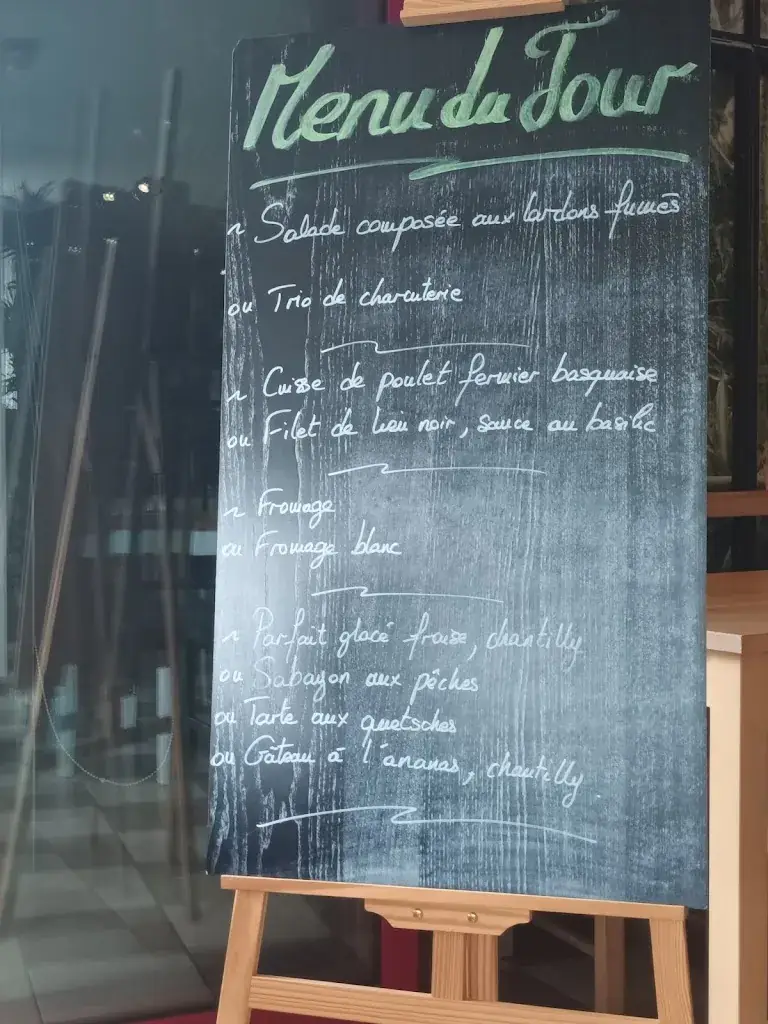 Menu du Jour
~ Salade composée aux lardons fumés
ou Trio de charcuterie
~ Cuisse de poulet fermier basquaise
ou Filet de lieu noir, sauce au basilic
~ Fromage
ou Fromage blanc
~ Parfait glacé fraise, chantilly
ou Sabayon aux pêches
ou Tarte aux quetsches
ou Gâteau à l'ananas, chantilly